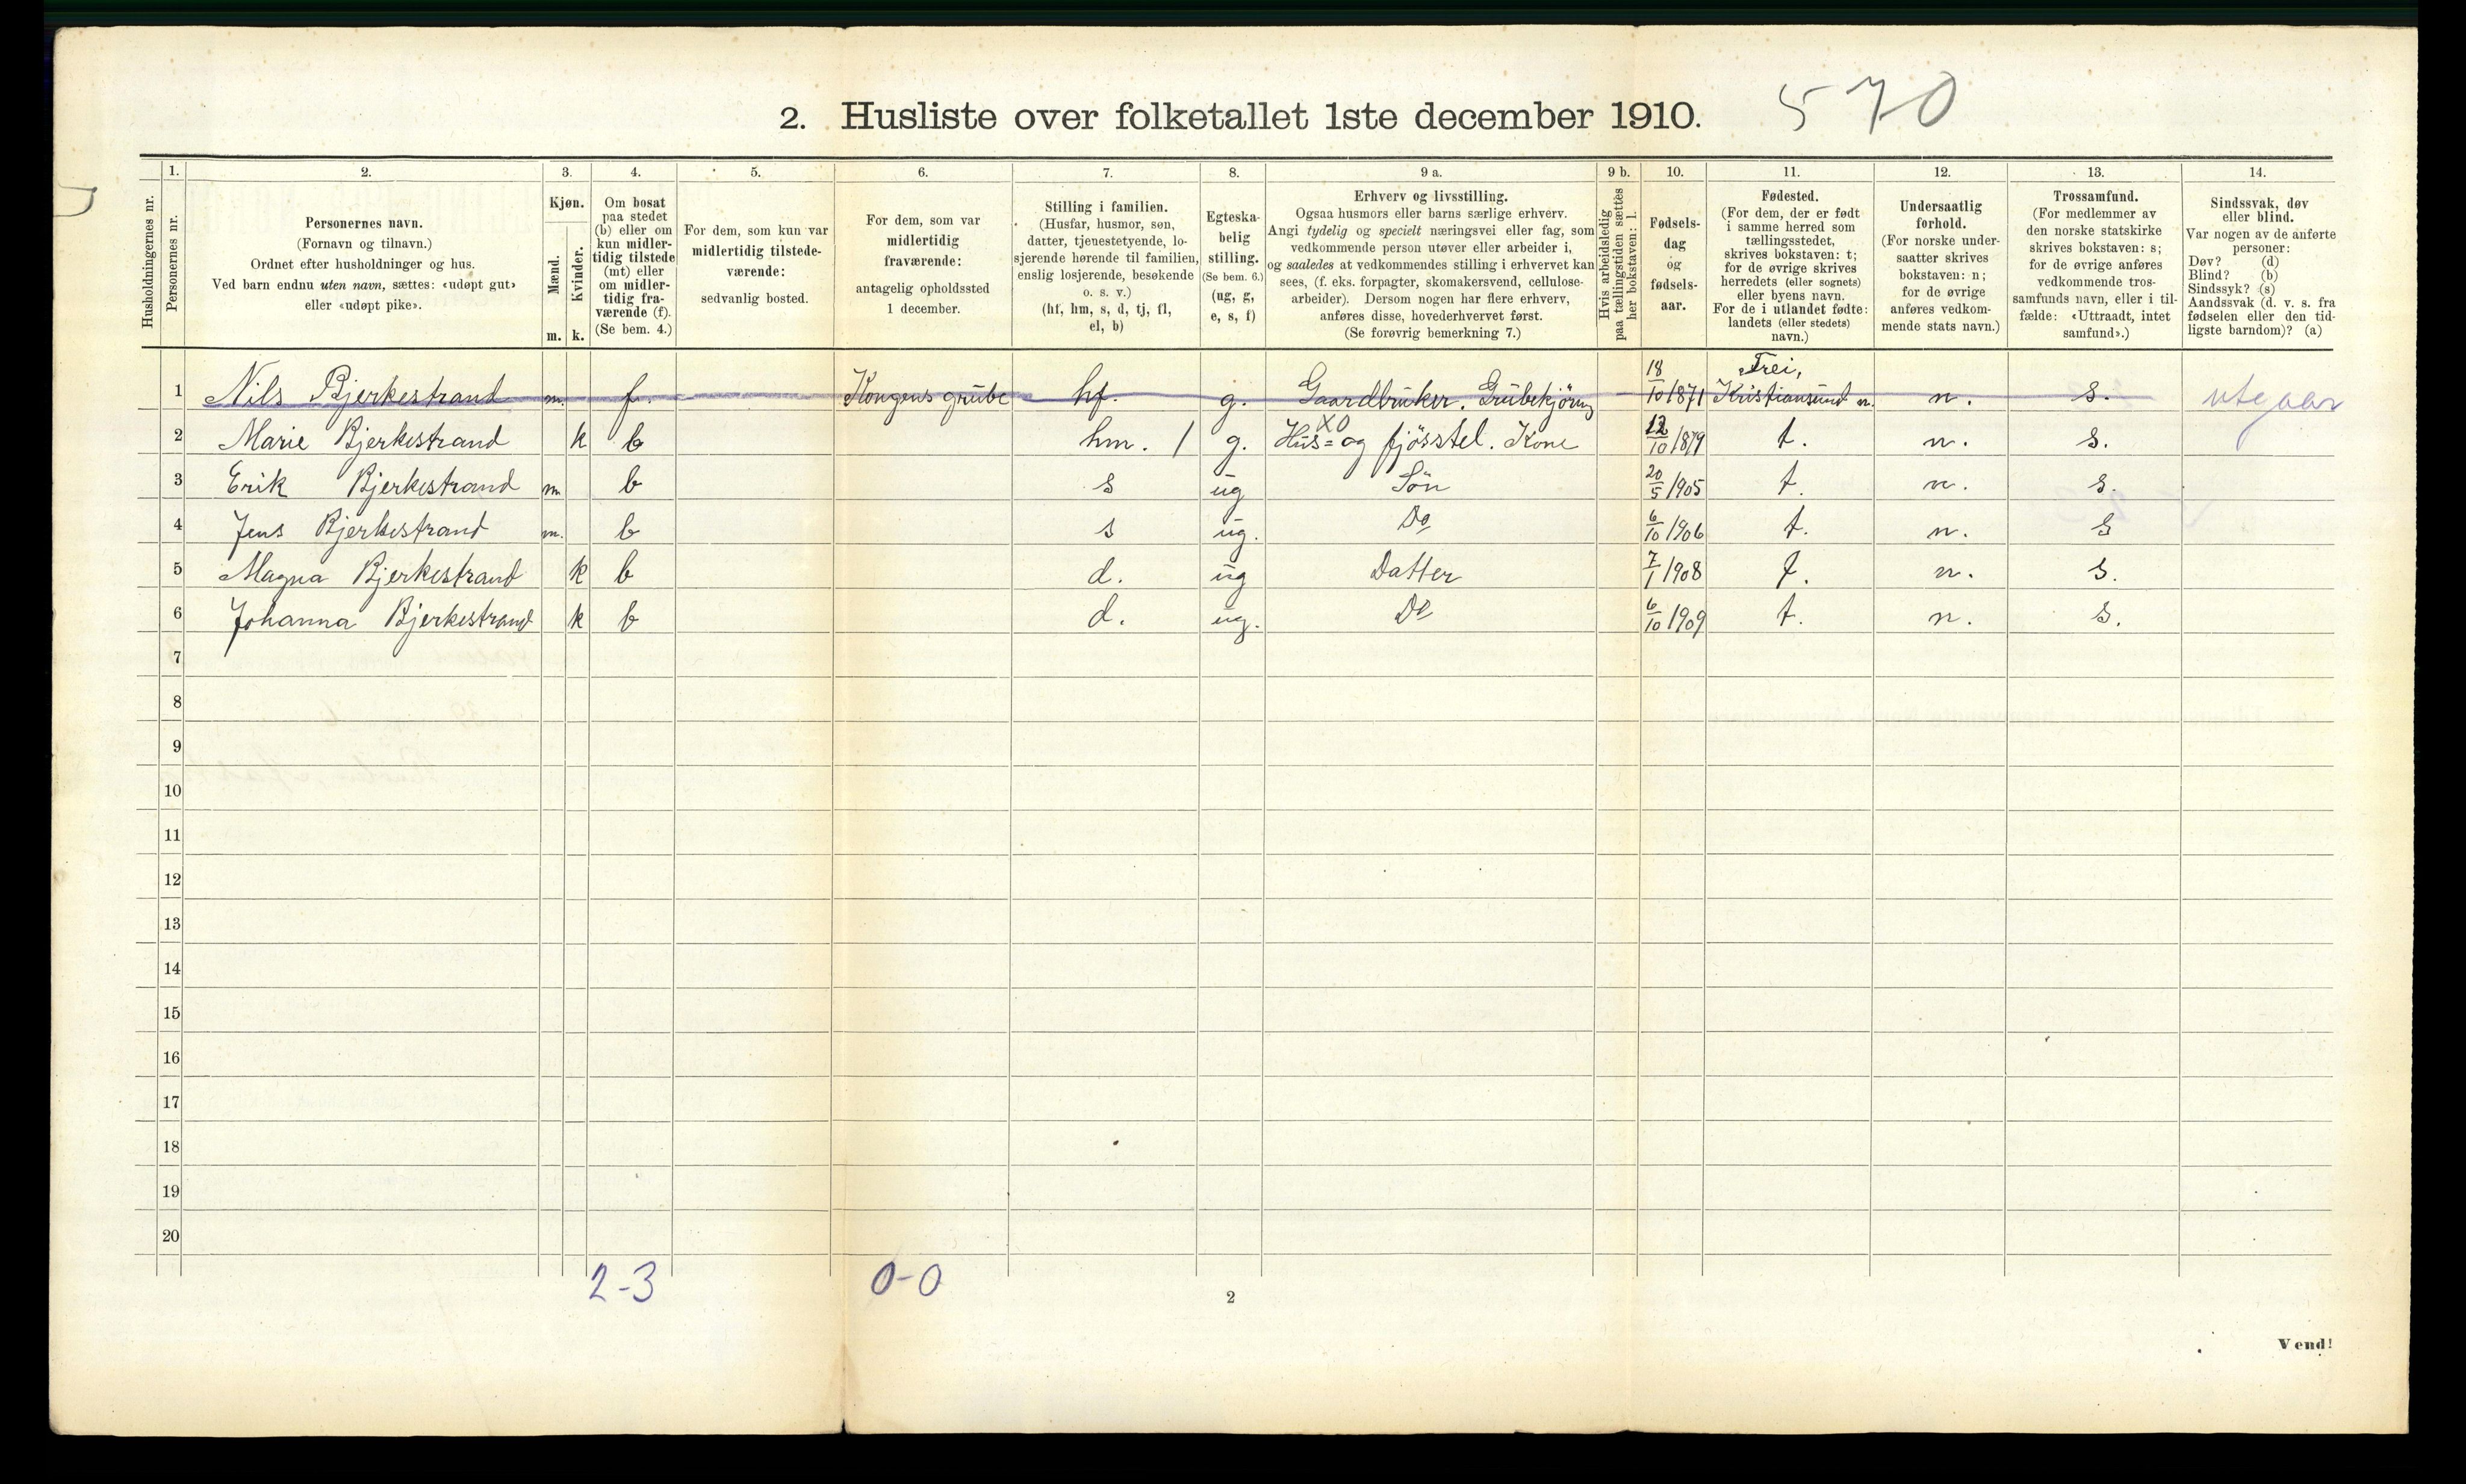 2. Husliste over folketallet 1ste december 1910. 570
Husholdningernes nr.
1.
Personernes nr.
2.
Personernes navn.
(Fornavn og tilnavn.)
Ordnet efter husholdninger og hus.
Ved barn endnu uten navn, sættes: «udøpt gut»
eller «udøpt pike».
3.
Kjøn.
Mænd.
Kvinder.
m. k.
4.
Om bosat
paa stedet
(b) eller om
kun midler-
tidig tilstede
(mt) eller
om midler-
tidig fra-
værende (f).
(Se bem. 4.)
5.
For dem, som kun var
midlertidig tilstede-
værende:
sedvanlig bosted.
6.
For dem, som var
midlertidig
fraværende:
antagelig opholdssted
1 december.
7.
Stilling i familien.
(Husfar, husmor, søn,
datter, tjenestetyende, lo-
sjerende hørende til familien,
enslig losjerende, besøkende
o. s. v.)
(hf, hm, s, d, tj, fl,
el, b)
8.
Egteska-
belig
stilling.
(Se bem. 6.)
(ug, g,
e, s, f)
9 a.
Erhverv og livsstilling.
Ogsaa husmors eller barns særlige erhverv.
Angi tydelig og specielt næringsvei eller fag, som
vedkommende person utøver eller arbeider i,
og saaledes at vedkommendes stilling i erhvervet kan
sees, (f. eks. forpagter, skomakersvend, cellulose-
arbeider). Dersom nogen har flere erhverv,
anføres disse, hovederhvervet først.
(Se forøvrig bemerkning 7.)
9 b.
Hvis arbeidsledig
paa tællingstiden sættes
her bokstaven: l.
10.
Fødsels-
dag
og
fødsels-
aar.
11.
Fødested.
(For dem, der er født
i samme herred som
tællingsstedet,
skrives bokstaven: t;
for de øvrige skrives
herredets (eller sognets)
eller byens navn.
For de i utlandet fødte:
landets (eller stedets)
navn.)
12.
Undersaatlig
forhold.
(For norske under-
saatter skrives
bokstaven: n;
for de øvrige
anføres vedkom-
mende stats navn.)
13.
Trossamfund.
(For medlemmer av
den norske statskirke
skrives bokstaven: s;
for de øvrige anføres
vedkommende tros-
samfunds navn, eller i til-
fælde: «Uttraadt, intet
samfund».)
14.
Sindssvak, døv
eller blind.
Var nogen av de anførte
personer:
Døv? (d)
Blind? (b)
Sindssyk? (s)
Aandssvak (d. v. s. fra
fødselen eller den tid-
ligste barndom)? (a)
1 Nils Bjerkestrand m. f. Kongens grube hf. g. Gaardbruker. Grubekjöring 18/10 1871 Frei, Kristiansund n. n. s. utgaar
2 Marie Bjerkestrand k b hm. / g. XO Hus= og fjösstel. Kone 12/10 1879 t. n. s.
3 Erik Bjerkestrand m b s ug Sön 20/5 1905 t. n. s.
4 Jens Bjerkestrand m. b s ug. Do 6/10 1906 t. n. s
5 Magna Bjerkestrand k b d. ug Datter 7/1 1908 t. n. s.
6 Johanna Bjerkestrand k b d. ug. Do 6/10 1909 t. n. s.
7
8
9
10
11
12
13
14
15
16
17
18
19
20
2-3 0-0
2
Vend!